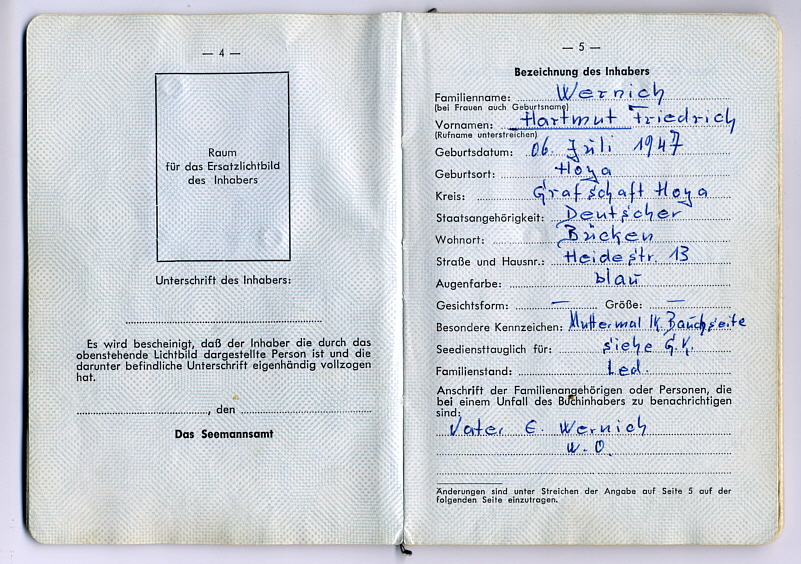 — 4 —
Raum
für das Ersatzlichtbild
des Inhabers
Unterschrift des Inhabers:
Es wird bescheinigt, daß der Inhaber die durch das
obenstehende Lichtbild dargestellte Person ist und die
darunter befindliche Unterschrift eigenhändig vollzogen
hat.
, den
Das Seemannsamt
— 5 —
Bezeichnung des Inhabers
Familienname: Wernich
(bei Frauen auch Geburtsname)
Vornamen: Hartmut Friedrich
(Rufname unterstreichen)
Geburtsdatum: 06. Juli 1947
Geburtsort: Hoya
Kreis: Grafschaft Hoya
Staatsangehörigkeit: Deutscher
Wohnort: Bücken
Straße und Hausnr.: Heidestr. 13
Augenfarbe: blau
Gesichtsform: — Größe: —
Besondere Kennzeichen: Muttermal lk. Bauchseite
Seediensttauglich für: siehe G.K.
Familienstand: Led.
Anschrift der Familienangehörigen oder Personen, die
bei einem Unfall des Buchinhabers zu benachrichtigen
sind:
Vater E. Wernich
w. O.
Änderungen sind unter Streichen der Angabe auf Seite 5 auf der
folgenden Seite einzutragen.